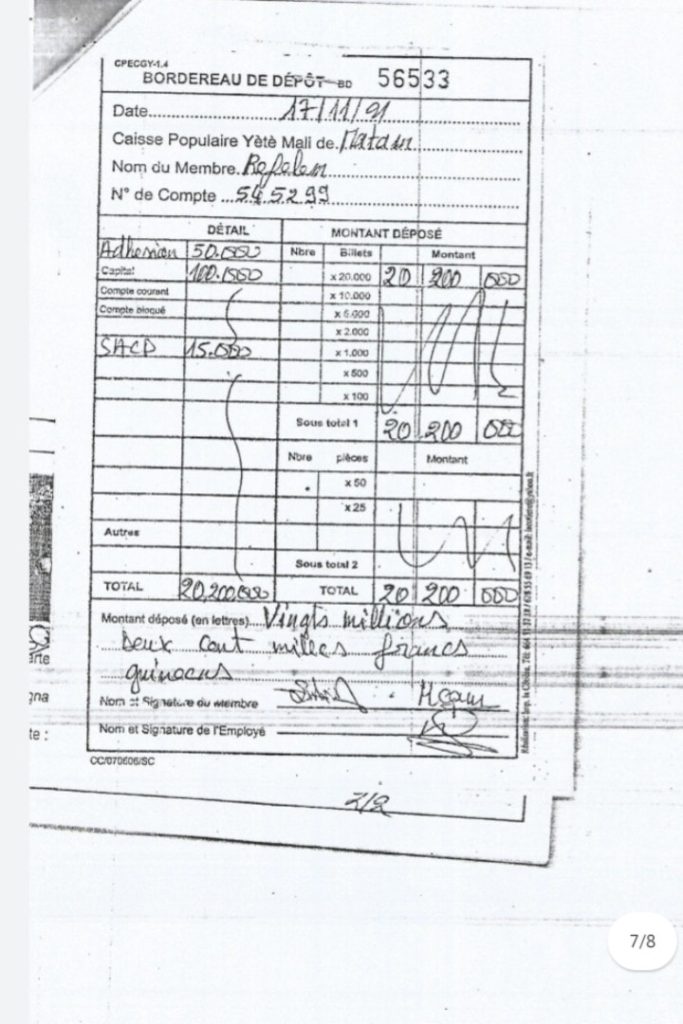 CPECGY-1.4
BORDEREAU DE DÉPÔT BD 56533
Date 17/11/91
Caisse Populaire Yètè Mali de Matam
Nom du Membre
N° de Compte 545299
DÉTAIL MONTANT DÉPOSÉ
Adhesion 50.000 Nbre Billets Montant
Capital 100.000 x 20.000 20 200 000
Compte courant x 10.000
Compte bloqué x 5.000
x 2.000
SACD 15.000 x 1.000
x 500
x 100
Sous total 1 20 200 000
Nbre pièces Montant
x 50
x 25
Autres
Sous total 2
TOTAL 20,200,000 TOTAL 20 200 000
Montant déposé (en lettres) Vingts millions
Deux cent milles francs
guineens
Nom et Signature du Membre
Nom et Signature de l'Employé
CC/070606/SC
7/8